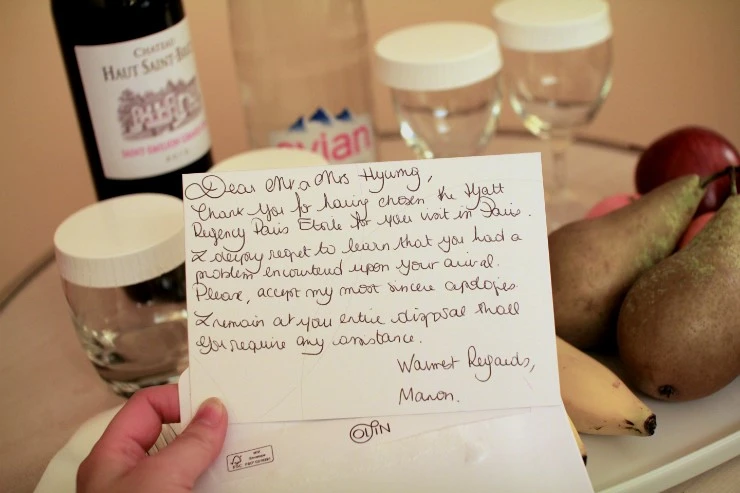 CHATEAU
HAUT SAINT-
evian
Dear Mr a Mrs Hyung,
Thank you for having chosen the Hyatt
Regency Paris Etoile for you visit in Paris.
I deeply regret to learn that you had a
problem encountered upon your arival.
Please, accept my most sincere apologies
I remain at you entire disposal shall
you require any assistance.
Warmest Regards,
Manon.
ODIN
FSC